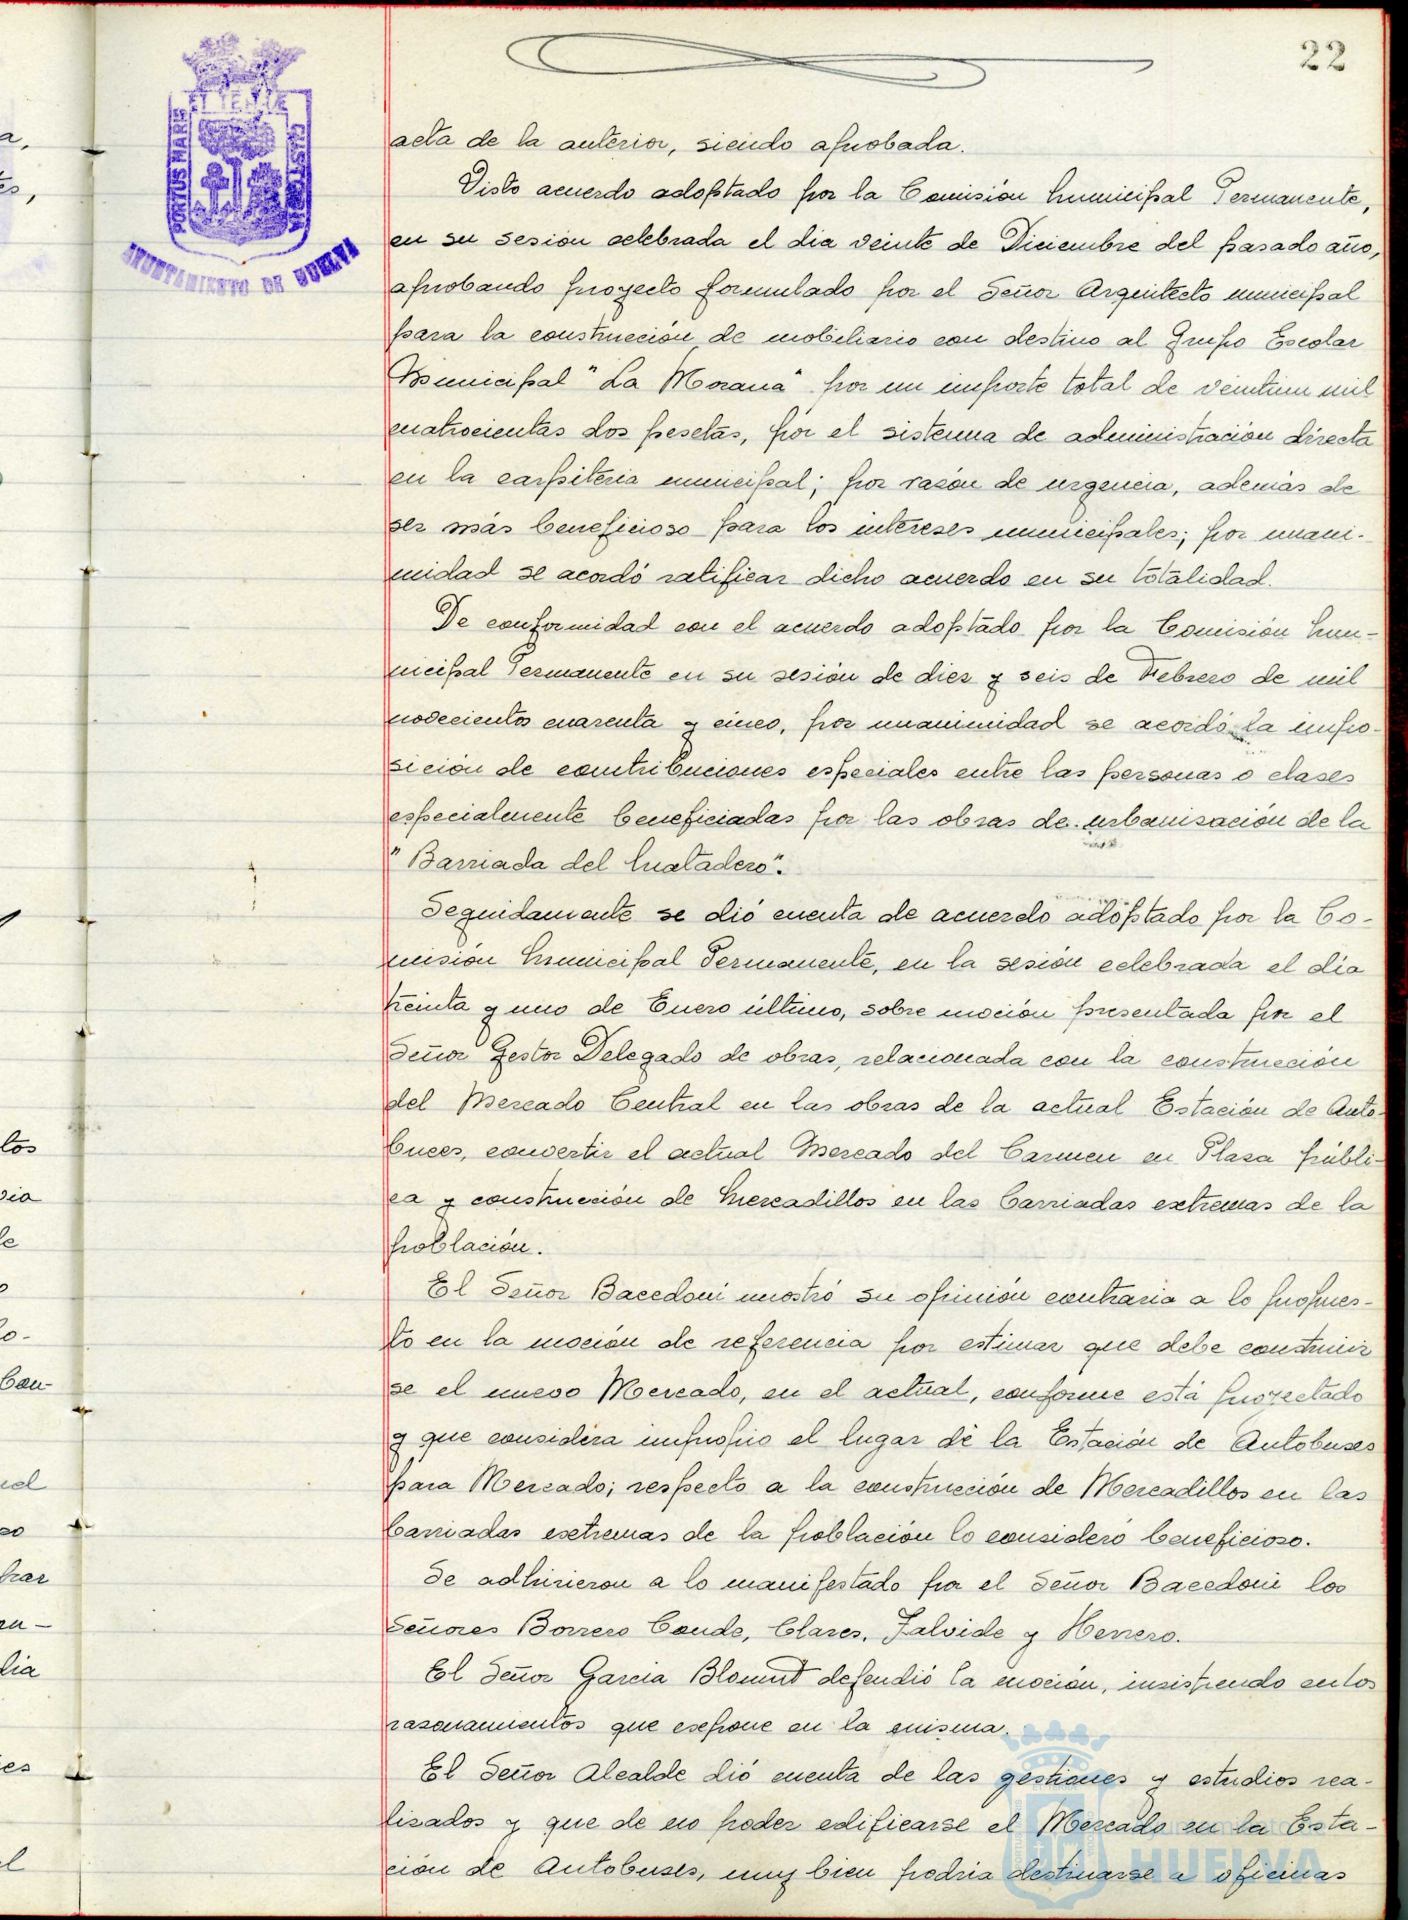 22
EL TERRAE
PORTUS MARIS
CUSTODIA
AYUNTAMIENTO DE HUELVA
acta de la anterior, siendo aprobada.
Visto acuerdo adoptado por la Comisión Municipal Permanente,
en su sesión celebrada el dia veinte de Diciembre del pasado año,
aprobando proyecto formulado por el Señor Arquitecto municipal
para la construcción de mobiliario con destino al Grupo Escolar
Municipal "La Morana" por un importe total de veintiun mil
cuatrocientas dos pesetas, por el sistema de administración directa
en la carpiteria municipal; por razón de urgencia, además de
ser más beneficioso para los intereses municipales; por unani-
midad se acordó ratificar dicho acuerdo en su totalidad.
De conformidad con el acuerdo adoptado por la Comisión Mu-
nicipal Permanente en su sesión de diez y seis de Febrero de mil
novecientos cuarenta y cinco, por unanimidad se acordó la impo-
sición de contribuciones especiales entre las personas o clases
especialmente beneficiadas por las obras de urbanización de la
"Barriada del Matadero".
Seguidamente se dió cuenta de acuerdo adoptado por la Co-
misión Municipal Permanente, en la sesión celebrada el dia
treinta y uno de Enero último, sobre moción presentada por el
Señor Gestor Delegado de obras, relacionada con la construcción
del Mercado Central en las obras de la actual Estación de Auto-
buces, convertir el actual Mercado del Carmen en Plaza públi-
ca y construcción de Mercadillos en las barriadas extremas de la
población.
El Señor Bacedoni mostró su opinión contraria a lo propues-
to en la moción de referencia por estimar que debe construir
se el nuevo Mercado, en el actual, conforme está proyectado
y que considera impropio el lugar de la Estación de Autobuses
para Mercado; respecto a la construcción de Mercadillos en las
barriadas extremas de la población lo consideró beneficioso.
Se adhirieron a lo manifestado por el Señor Bacedoni los
Señores Borrero Conde, Clares, Zalvide y Herrero.
El Señor Garcia defendió la moción, insistiendo en los
razonamientos que expone en la misma.
El Señor Alcalde dió cuenta de las gestiones y estudios rea-
lizados y que de no poder edificarse el Mercado en la Esta-
ción de Autobuses, muy bien podria destinarse a oficinas
HUELVA